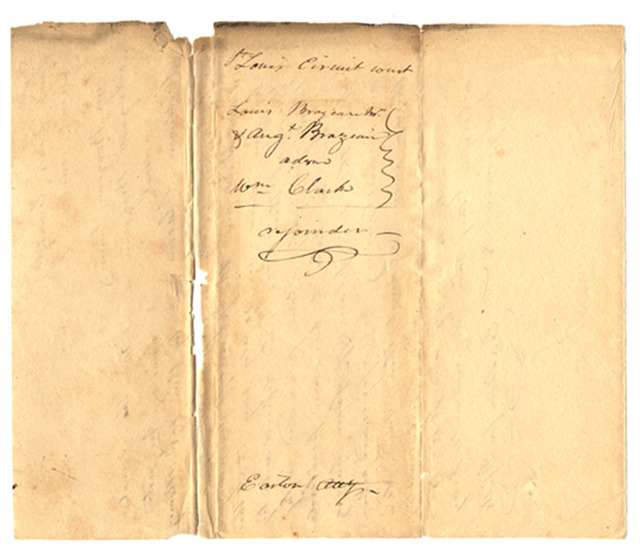 St Louis Circuit court
Louis Brazeau
& Augt. Brazeau
adsm
Wm Clark
rejoinder
Easton Atty